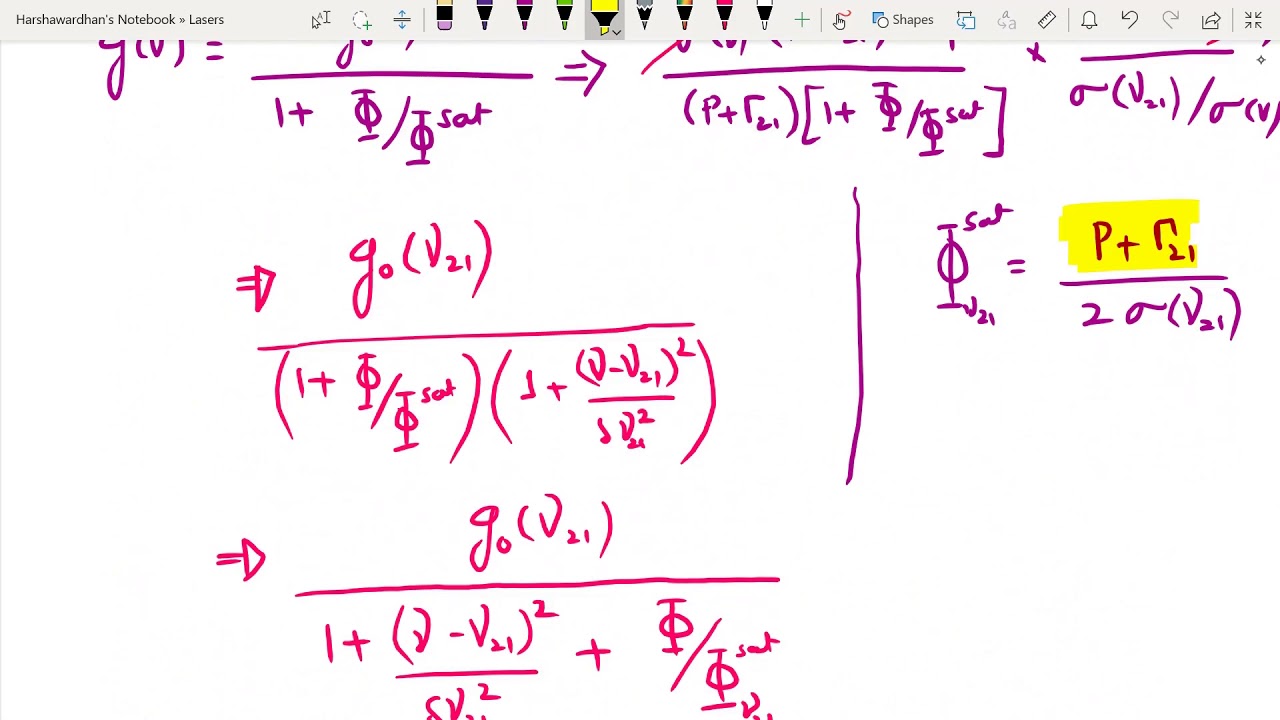 Harshawardhan's Notebook » Lasers
Shapes
g(ν) =
1 + Φ/Φ^sat ⇒ (P+Γ₂₁)[1 + Φ/Φ^sat] × σ(ν₂₁)/σ(ν)
⇒ g₀(ν₂₁)
(1 + Φ/Φ^sat)(1 + (ν-ν₂₁)²/δν₂₁²)
Φ^sat_ν₂₁ = P + Γ₂₁
2 σ(ν₂₁)
⇒ g₀(ν₂₁)
1 + (ν - ν₂₁)²/δν₂₁² + Φ/Φ^sat_ν₂₁